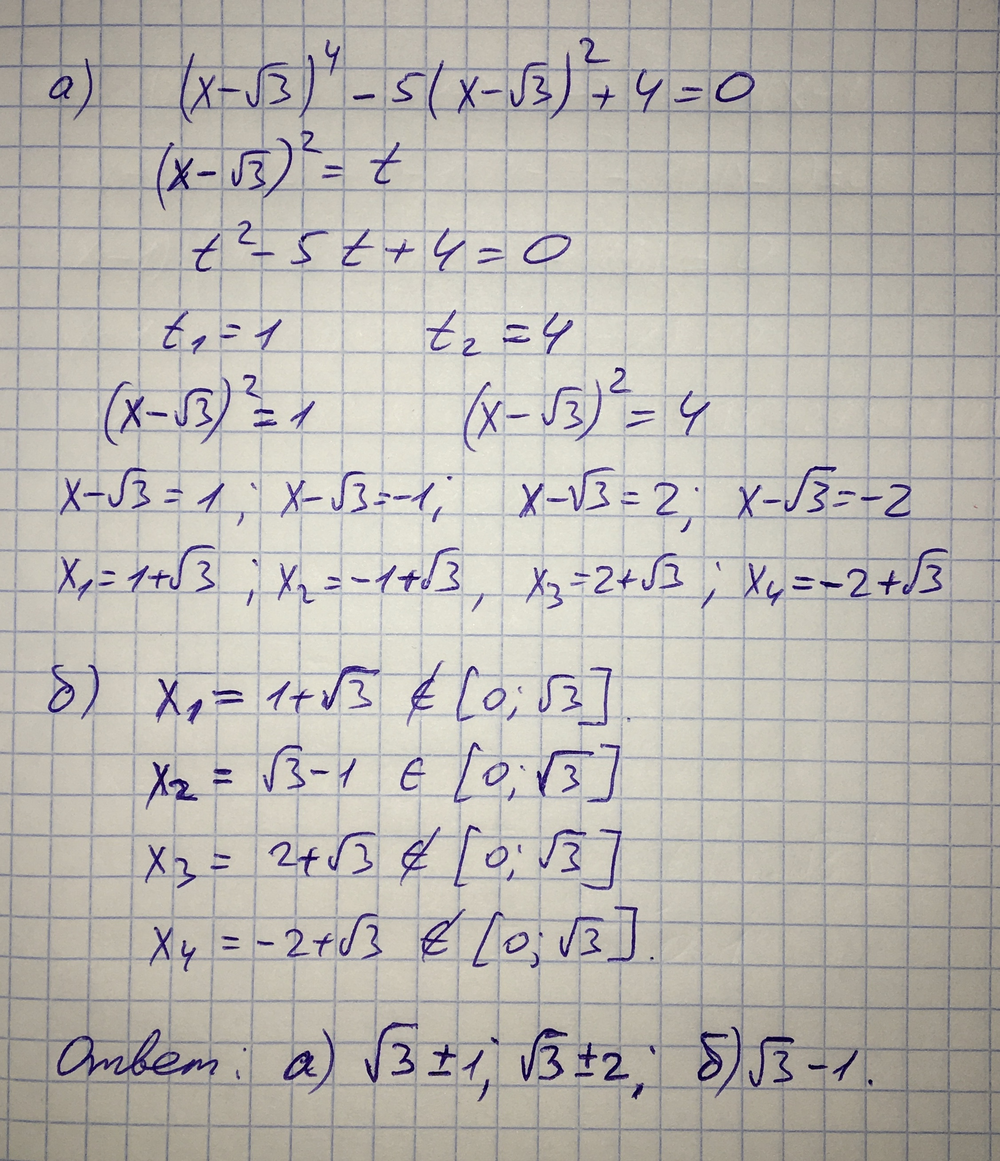 а) (x-√3)⁴ - 5(x-√3)² + 4 = 0
(x-√3)² = t
t² - 5t + 4 = 0
t₁ = 1 t₂ = 4
(x-√3)² = 1 (x-√3)² = 4
x-√3 = 1; x-√3 = -1; x-√3 = 2; x-√3 = -2
x₁ = 1+√3; x₂ = -1+√3, x₃ = 2+√3; x₄ = -2+√3
б) x₁ = 1+√3 ∉ [0; √3].
x₂ = √3-1 ∈ [0; √3]
x₃ = 2+√3 ∉ [0; √3]
x₄ = -2+√3 ∉ [0; √3].
Ответ: а) √3 ± 1; √3 ± 2; б) √3 - 1.